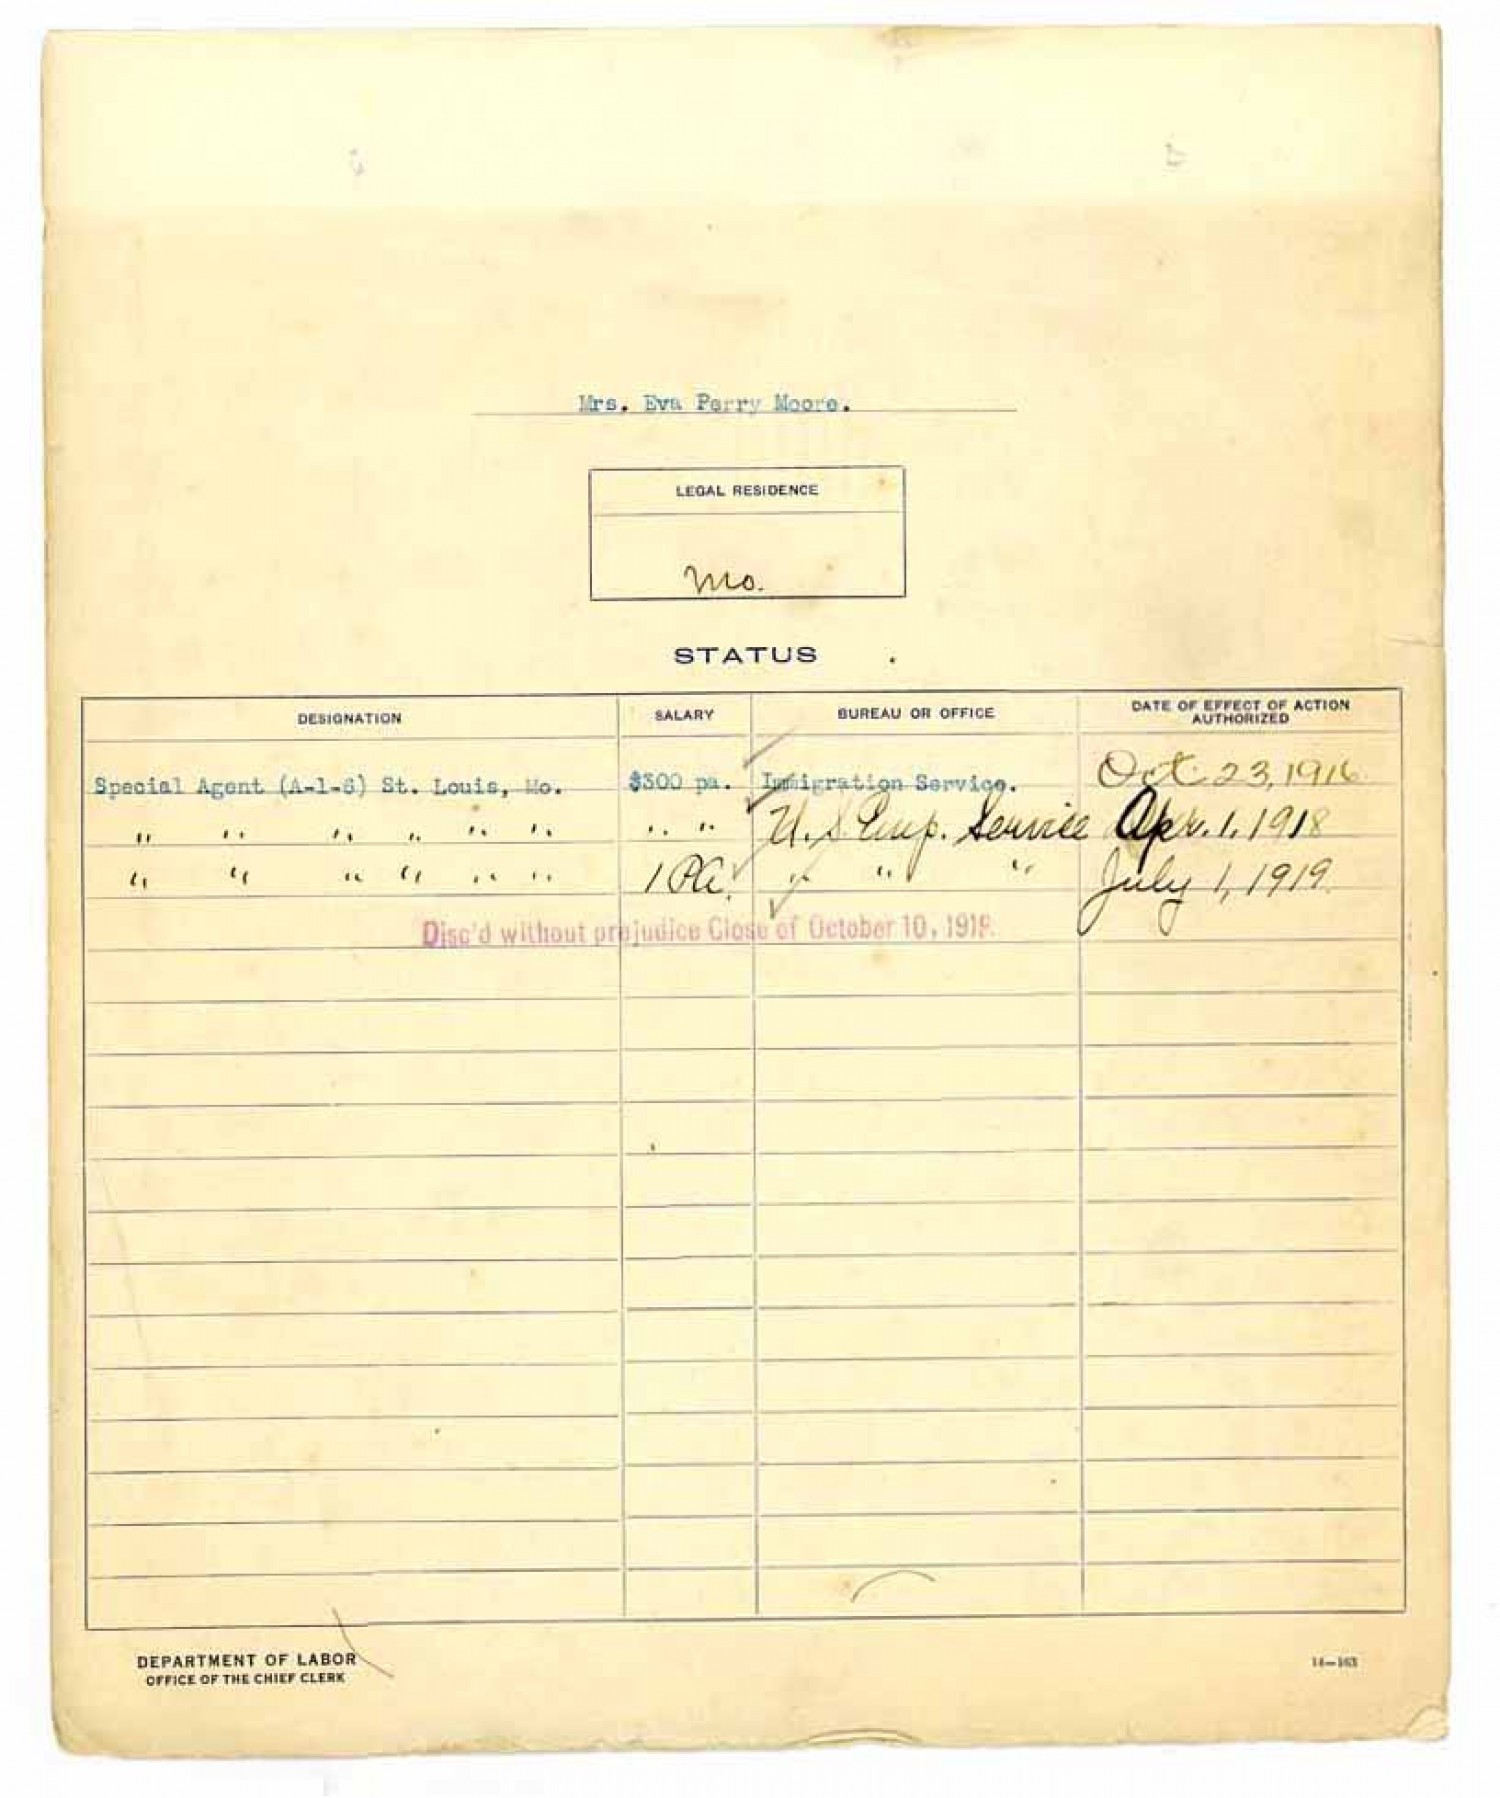 Mrs. Eva Perry Moore.
LEGAL RESIDENCE
Mo.
STATUS
DESIGNATION SALARY BUREAU OR OFFICE DATE OF EFFECT OF ACTION AUTHORIZED
Special Agent (A-1-6) St. Louis, Mo. $300 pa. Immigration Service. Oct. 23, 1916
" " " " " " " " U.S. Emp. Service Apr. 1, 1918
" " " " " " 1 PA. " " " July 1, 1919.
Disc'd without prejudice Close of October 10, 1919.
DEPARTMENT OF LABOR
OFFICE OF THE CHIEF CLERK
14—163